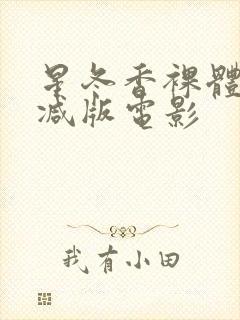 杲冬香裸體
减版電影
我有小田